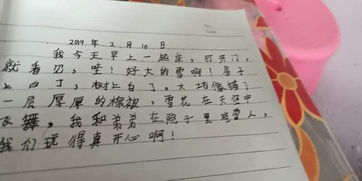 2019年2月10日
我今天早上一起来,打开门,
就看见,哇!好大的雪啊!房子
上白了,树上白了。大地像铺了
一层厚厚的棉被,雪花在天空中
飞舞。我和弟弟在院子里堆雪人,
我们玩得真开心啊!